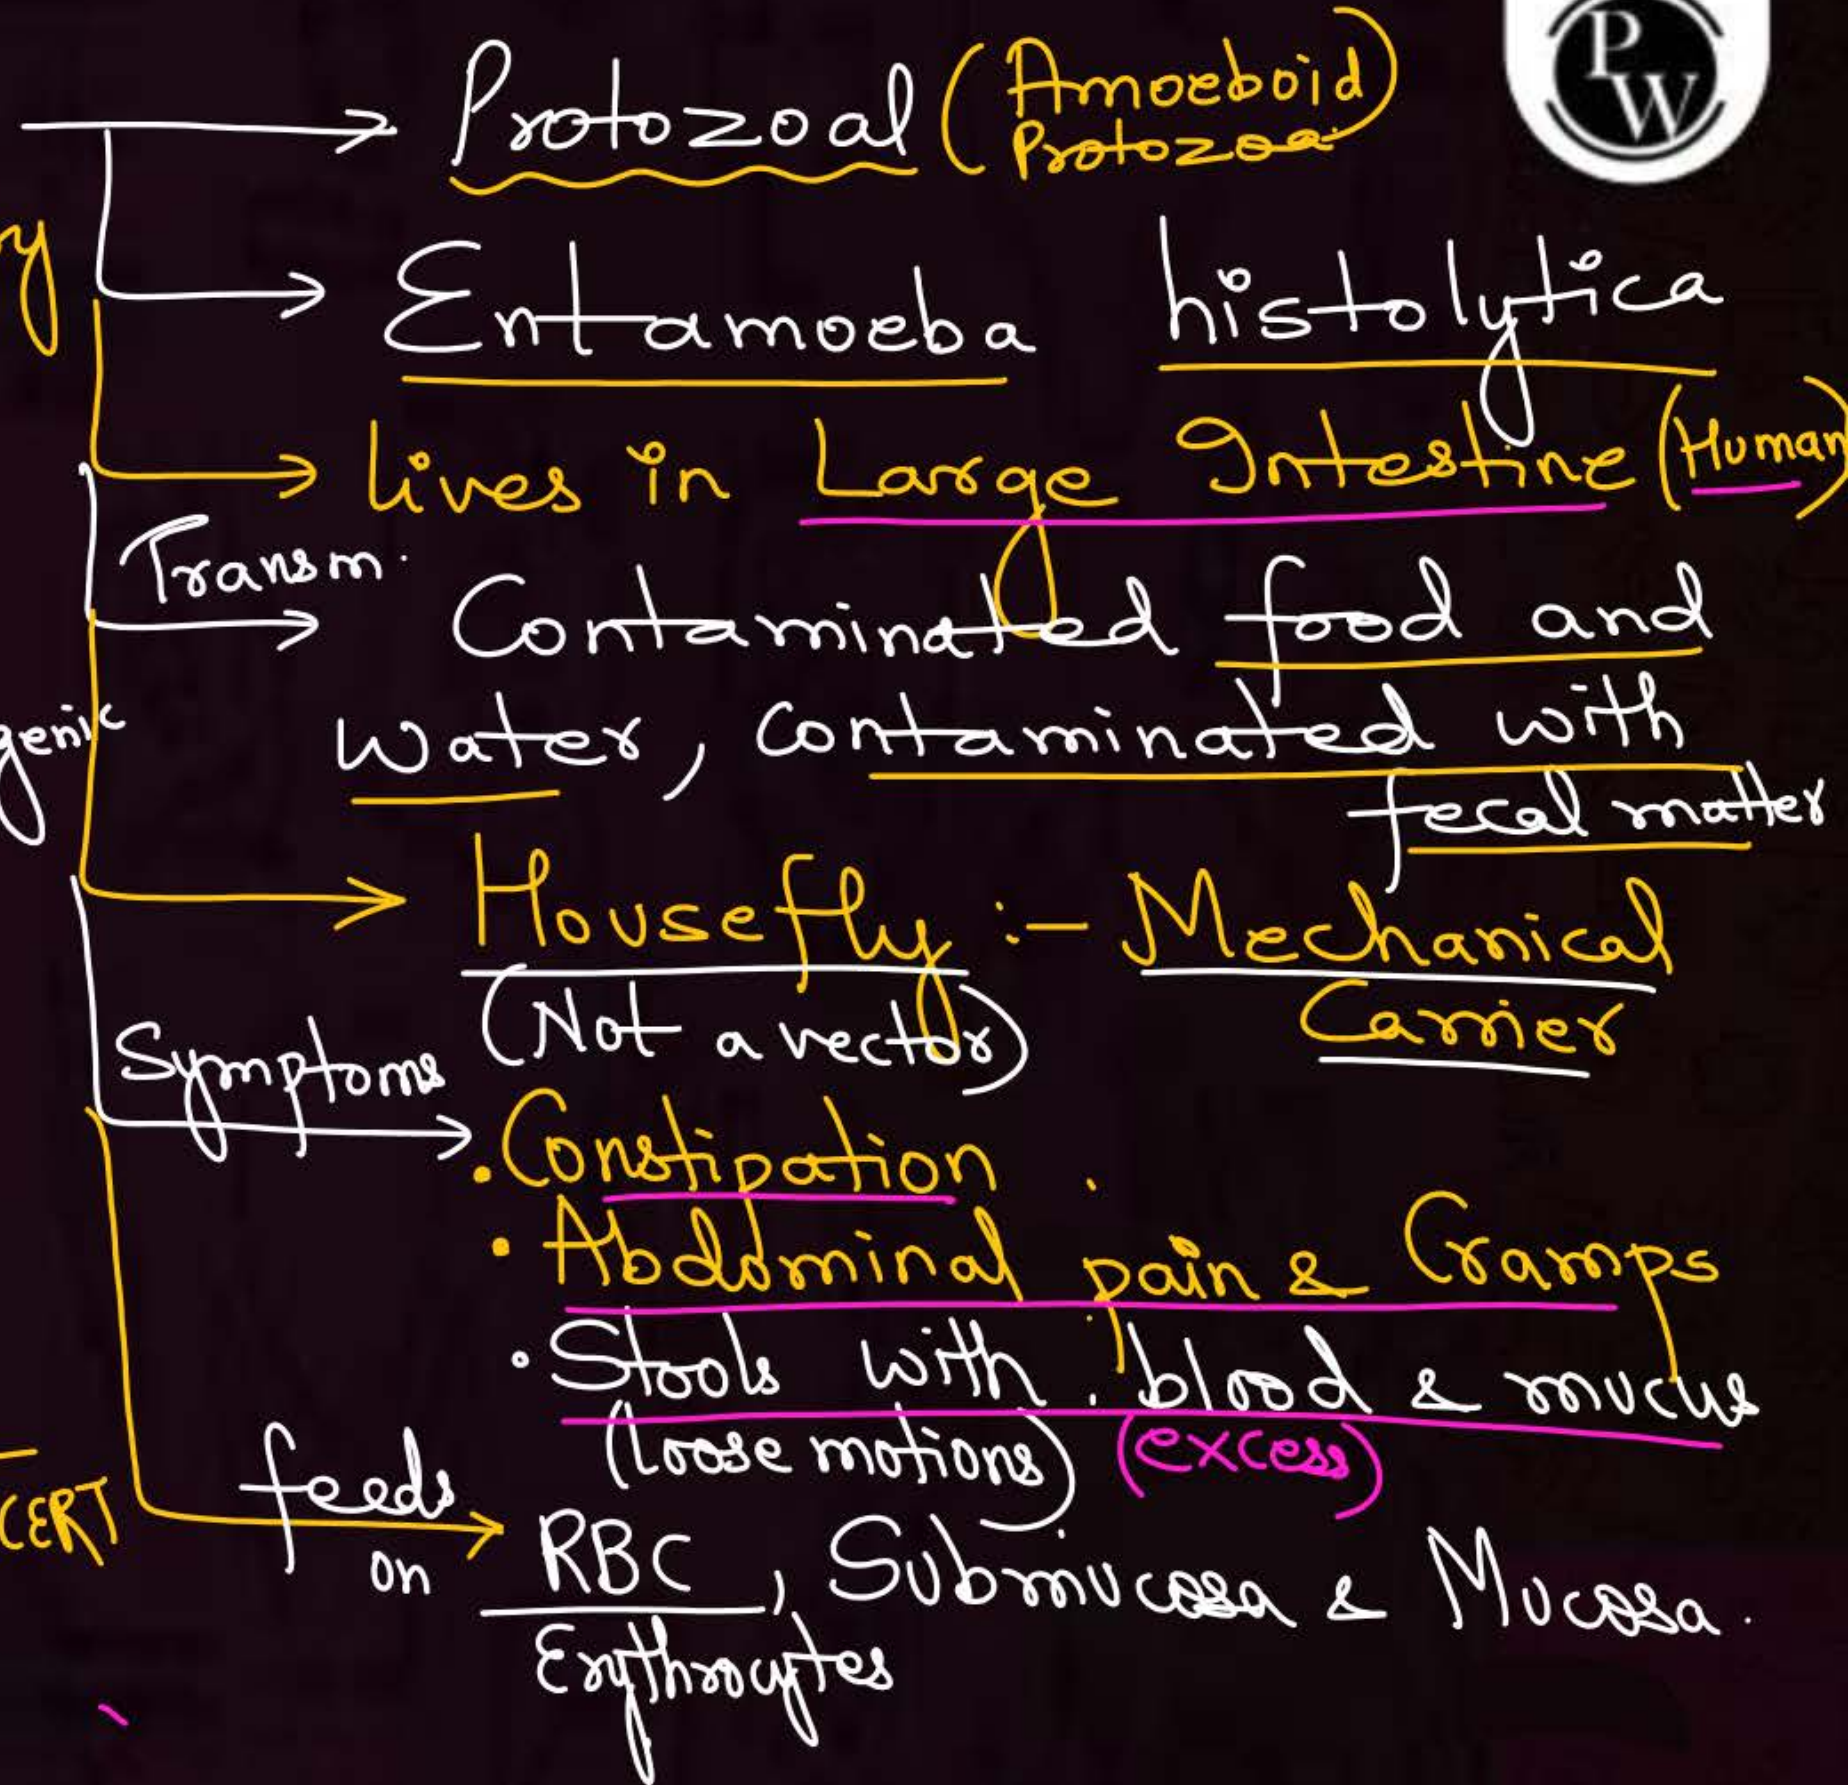 Protozoal (Amoeboid
Protozoa)
PW
Entamoeba histolytica
lives in Large Intestine (Human)
Transm.
Contaminated food and
water, contaminated with
fecal matter
genic
Housefly :- Mechanical
Carrier
(Not a vector)
Symptoms
• Constipation
• Abdominal pain & Cramps
• Stools with blood & mucus
(loose motions) (excess)
CERT
feeds
on
RBC, Submucosa & Mucosa.
Erythrocytes